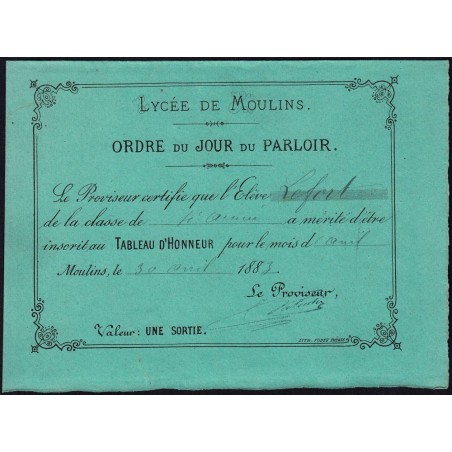 LYCÉE DE MOULINS.
ORDRE DU JOUR DU PARLOIR.
Le Proviseur certifie que l'Élève Lefort
de la classe de 4e année a mérité d'être
inscrit au TABLEAU D'HONNEUR pour le mois d'avril
Moulins, le 30 avril 1883.
Le Proviseur,
Valeur: UNE SORTIE.